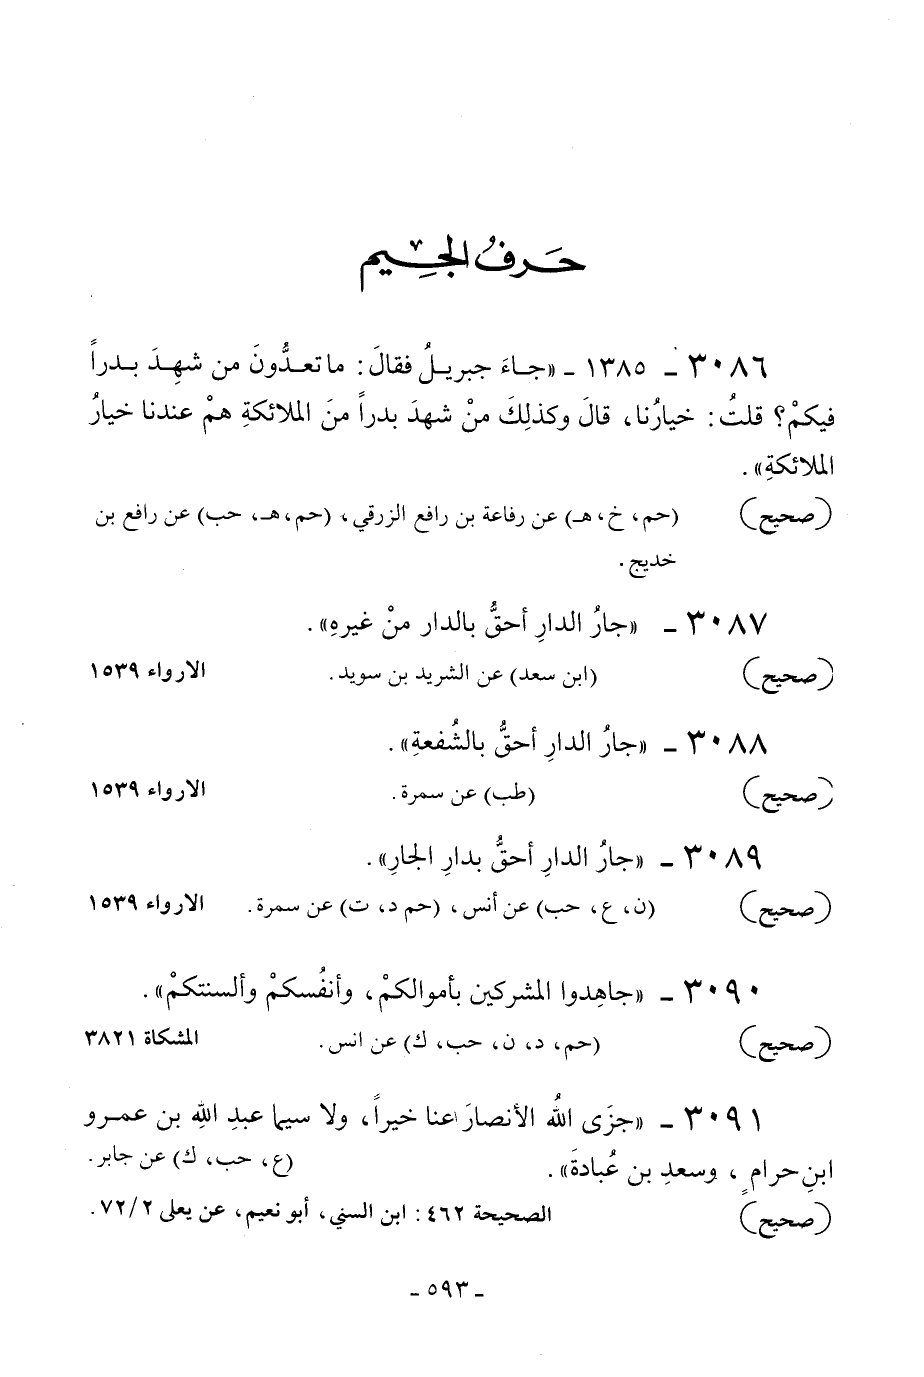 حَرفُ الجِيم
٣٠٨٦ - ١٣٨٥ - «جاءَ جبريلُ فقالَ: ما تعدُّونَ من شهِدَ بدراً
فيكمْ؟ قلتُ: خيارُنا، قالَ وكذلِكَ منْ شهدَ بدراً منَ الملائكةِ همْ عندنا خيارُ
الملائكةِ».
(صحيح) (حم، خ، هـ) عن رفاعة بن رافع الزرقي، (حم، هـ، حب) عن رافع بن
خديج.
٣٠٨٧ - «جارُ الدارِ أحقُّ بالدار منْ غيرهِ».
(صحيح) (ابن سعد) عن الشريد بن سويد. الارواء ١٥٣٩
٣٠٨٨ - «جارُ الدارِ أحقُّ بالشُفعةِ».
(صحيح) (طب) عن سمرة. الارواء ١٥٣٩
٣٠٨٩ - «جارُ الدارِ أحقُّ بدارِ الجارِ».
(صحيح) (ن، ع، حب) عن أنس، (حم د، ت) عن سمرة. الارواء ١٥٣٩
٣٠٩٠ - «جاهِدوا المشركين بأموالكمْ، وأنفُسكمْ وألسنتكمْ».
(صحيح) (حم، د، ن، حب، ك) عن انس. المشكاة ٣٨٢١
٣٠٩١ - «جزَى اللهُ الأنصارَ عنا خيراً، ولا سيما عبدِ اللهِ بن عمرو
ابنِ حرامٍ، وسعدِ بن عُبادةَ». (ع، حب، ك) عن جابر.
(صحيح) الصحيحة ٤٦٢: ابن السني، أبو نعيم، عن يعلى ٧٢/٢.
- ٥٩٣ -